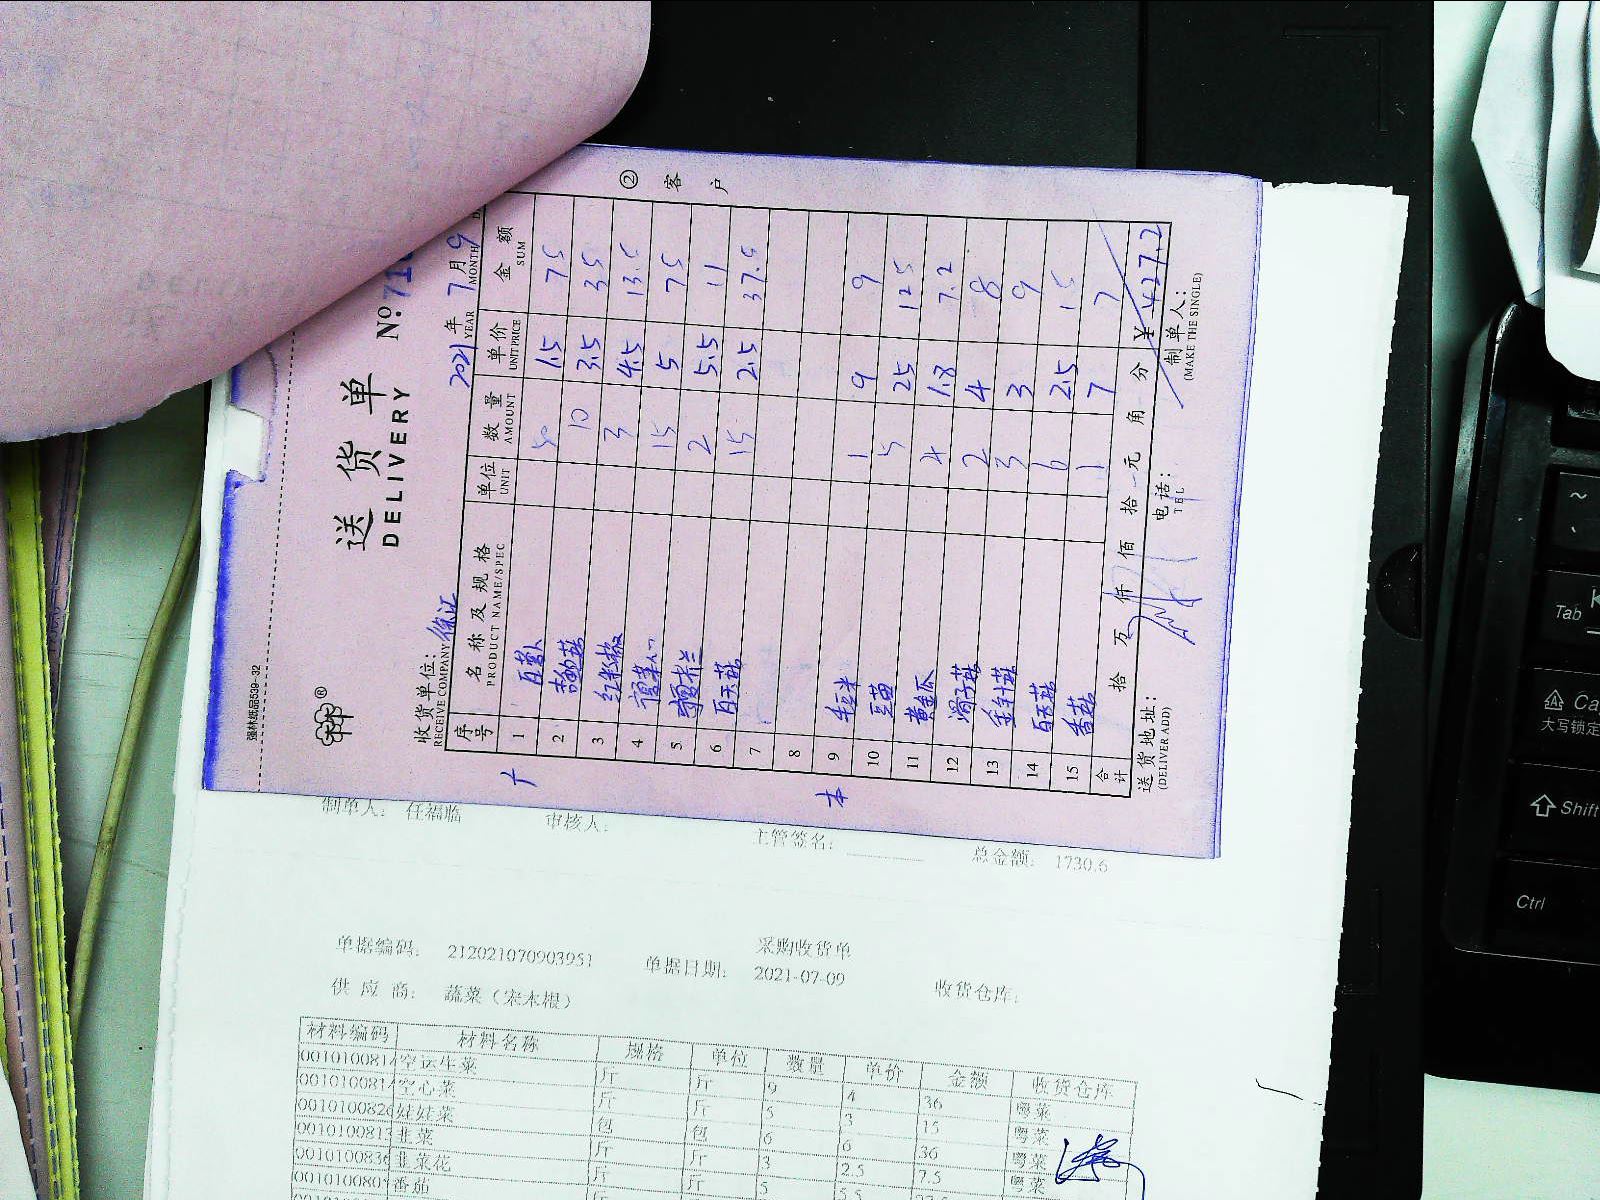 强林纸品539-32
送货单
DELIVERY
② 客户
收货单位：
RECEIVE COMPANY
2021 年 7 月 9
YEAR MONTH
序号 名称及规格 单位 数量 单价 金额
PRODUCT NAME/SPEC UNIT AMOUNT UNIT PRICE SUM
1 白萝卜 50 1.5 75
2 10 3.5 35
3 3 4.5 13.5
4 15 5 75
5 2 5.5 11
6 15 2.5 37.5
7
8
9 毛豆米 1 9 9
10 豆苗 5 25 125
11 黄金瓜 4 1.8 7.2
12 2 4 8
13 金针菇 3 3 9
14 6 2.5 15
15 香菇 1 7 7
合计 拾 万 仟 佰 拾 元 角 分 ¥ 427.2
送货地址： 电话： 制单人：
(DELIVER ADD) TEL (MAKE THE SINGLE)
制单人： 任福临 审核人： 主管签名： 总金额： 1730.6
采购收货单
单据编码： 212021070903951 单据日期： 2021-07-09 收货仓库：
供应商： 蔬菜（宋木根）
材料编码 材料名称 规格 单位 数量 单价 金额 收货仓库
空运生菜 斤 斤 9 4 36 粤菜
空心菜 斤 斤 5 3 15 粤菜
娃娃菜 包 包 6 6 36 粤菜
韭菜 斤 斤 3 2.5 7.5 粤菜
韭菜花 斤 斤 5 5.5
番茄
Tab
大写锁定
Shift
Ctrl